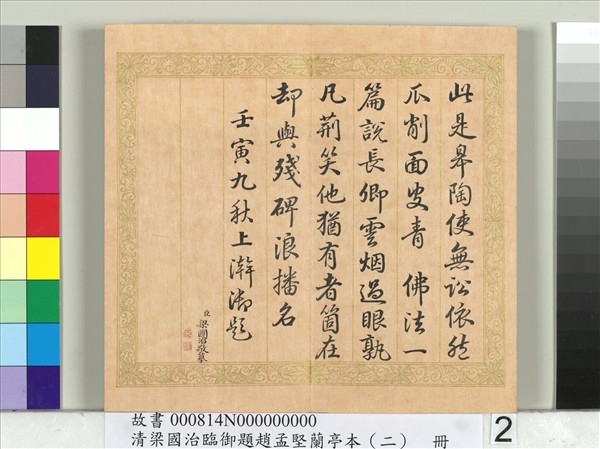 此是皋陶使無訟依然
瓜削面皮青　佛法一
篇說長卿雲烟過眼孰
凡荊笑他猶有者箇在
却與殘碑浪播名
壬寅九秋上澣御題
臣梁國治敬摹
故書 000814N000000000
清梁國治臨御題趙孟堅蘭亭本（二）　冊
2